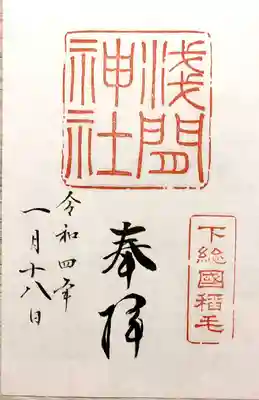 浅間
神社
下総國稲毛
奉拝
令和四年
一月十八日